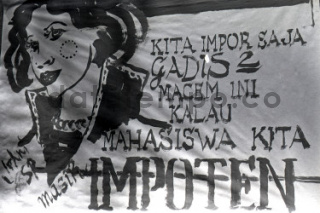 KITA IMPOR SAJA
GADIS2
MACEM INI
KALAU
MAHASISWA KITA
IMPOTEN
MUSIK